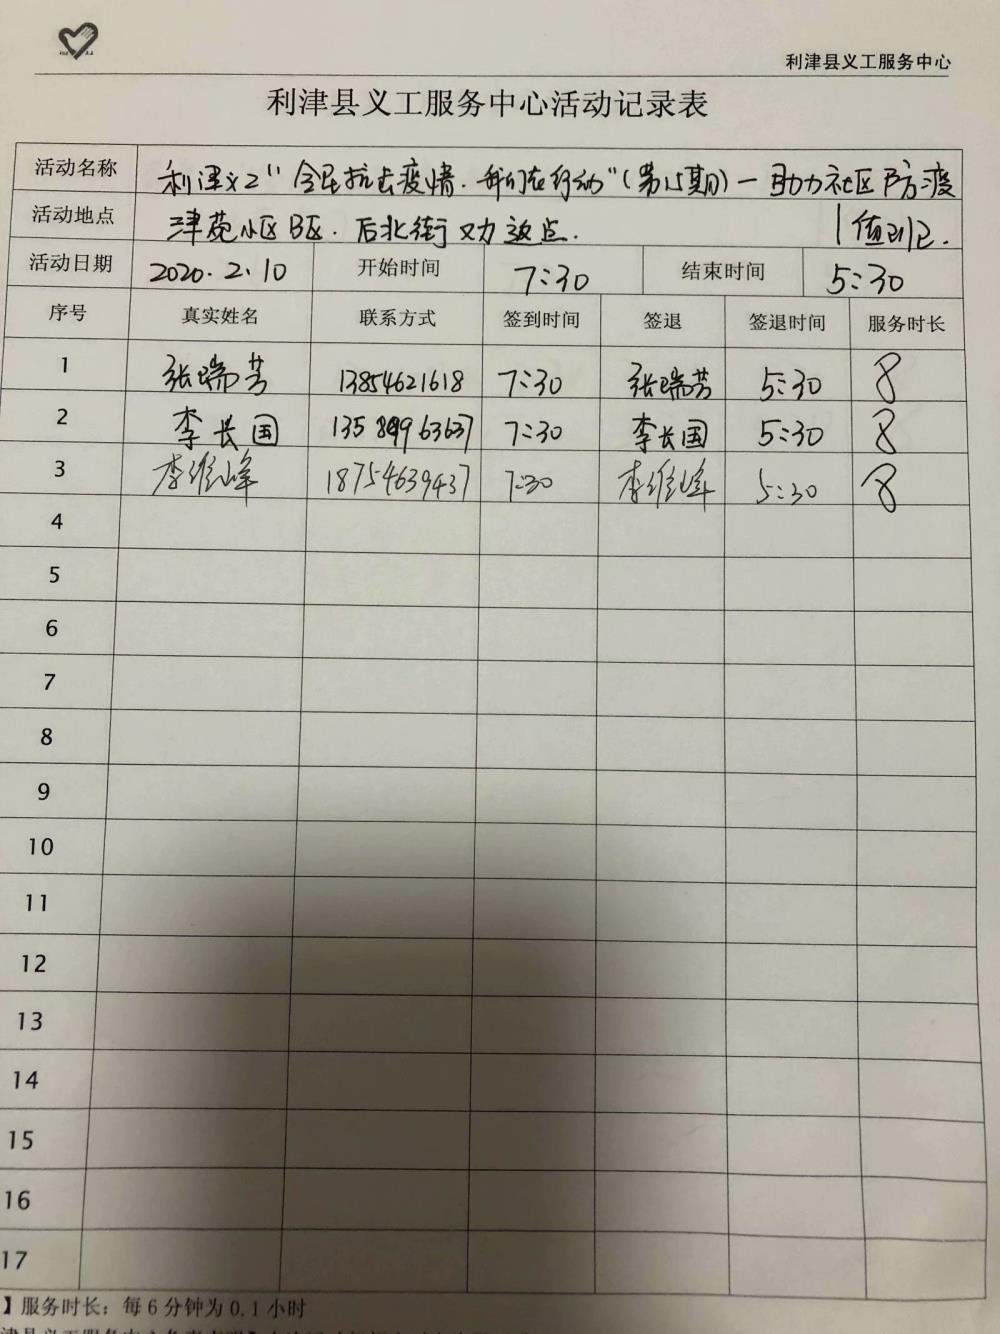 利津县义工服务中心
利津县义工服务中心活动记录表
活动名称 利津义工"全民抗击疫情.我们在行动"(第15期)一助力社区防疫
活动地点 津苑小区B区.后北街 值班.
活动日期 2020.2.10 开始时间 7:30 结束时间 5:30
序号 真实姓名 联系方式 签到时间 签退 签退时间 服务时长
1 张瑞芳 13854621618 7:30 张瑞芳 5:30 8
2 李长国 13589963637 7:30 李长国 5:30 8
3 李维峰 18754639437 7:30 李维峰 5:30 8
4
5
6
7
8
9
10
11
12
13
14
15
16
17
】服务时长：每6分钟为0.1小时